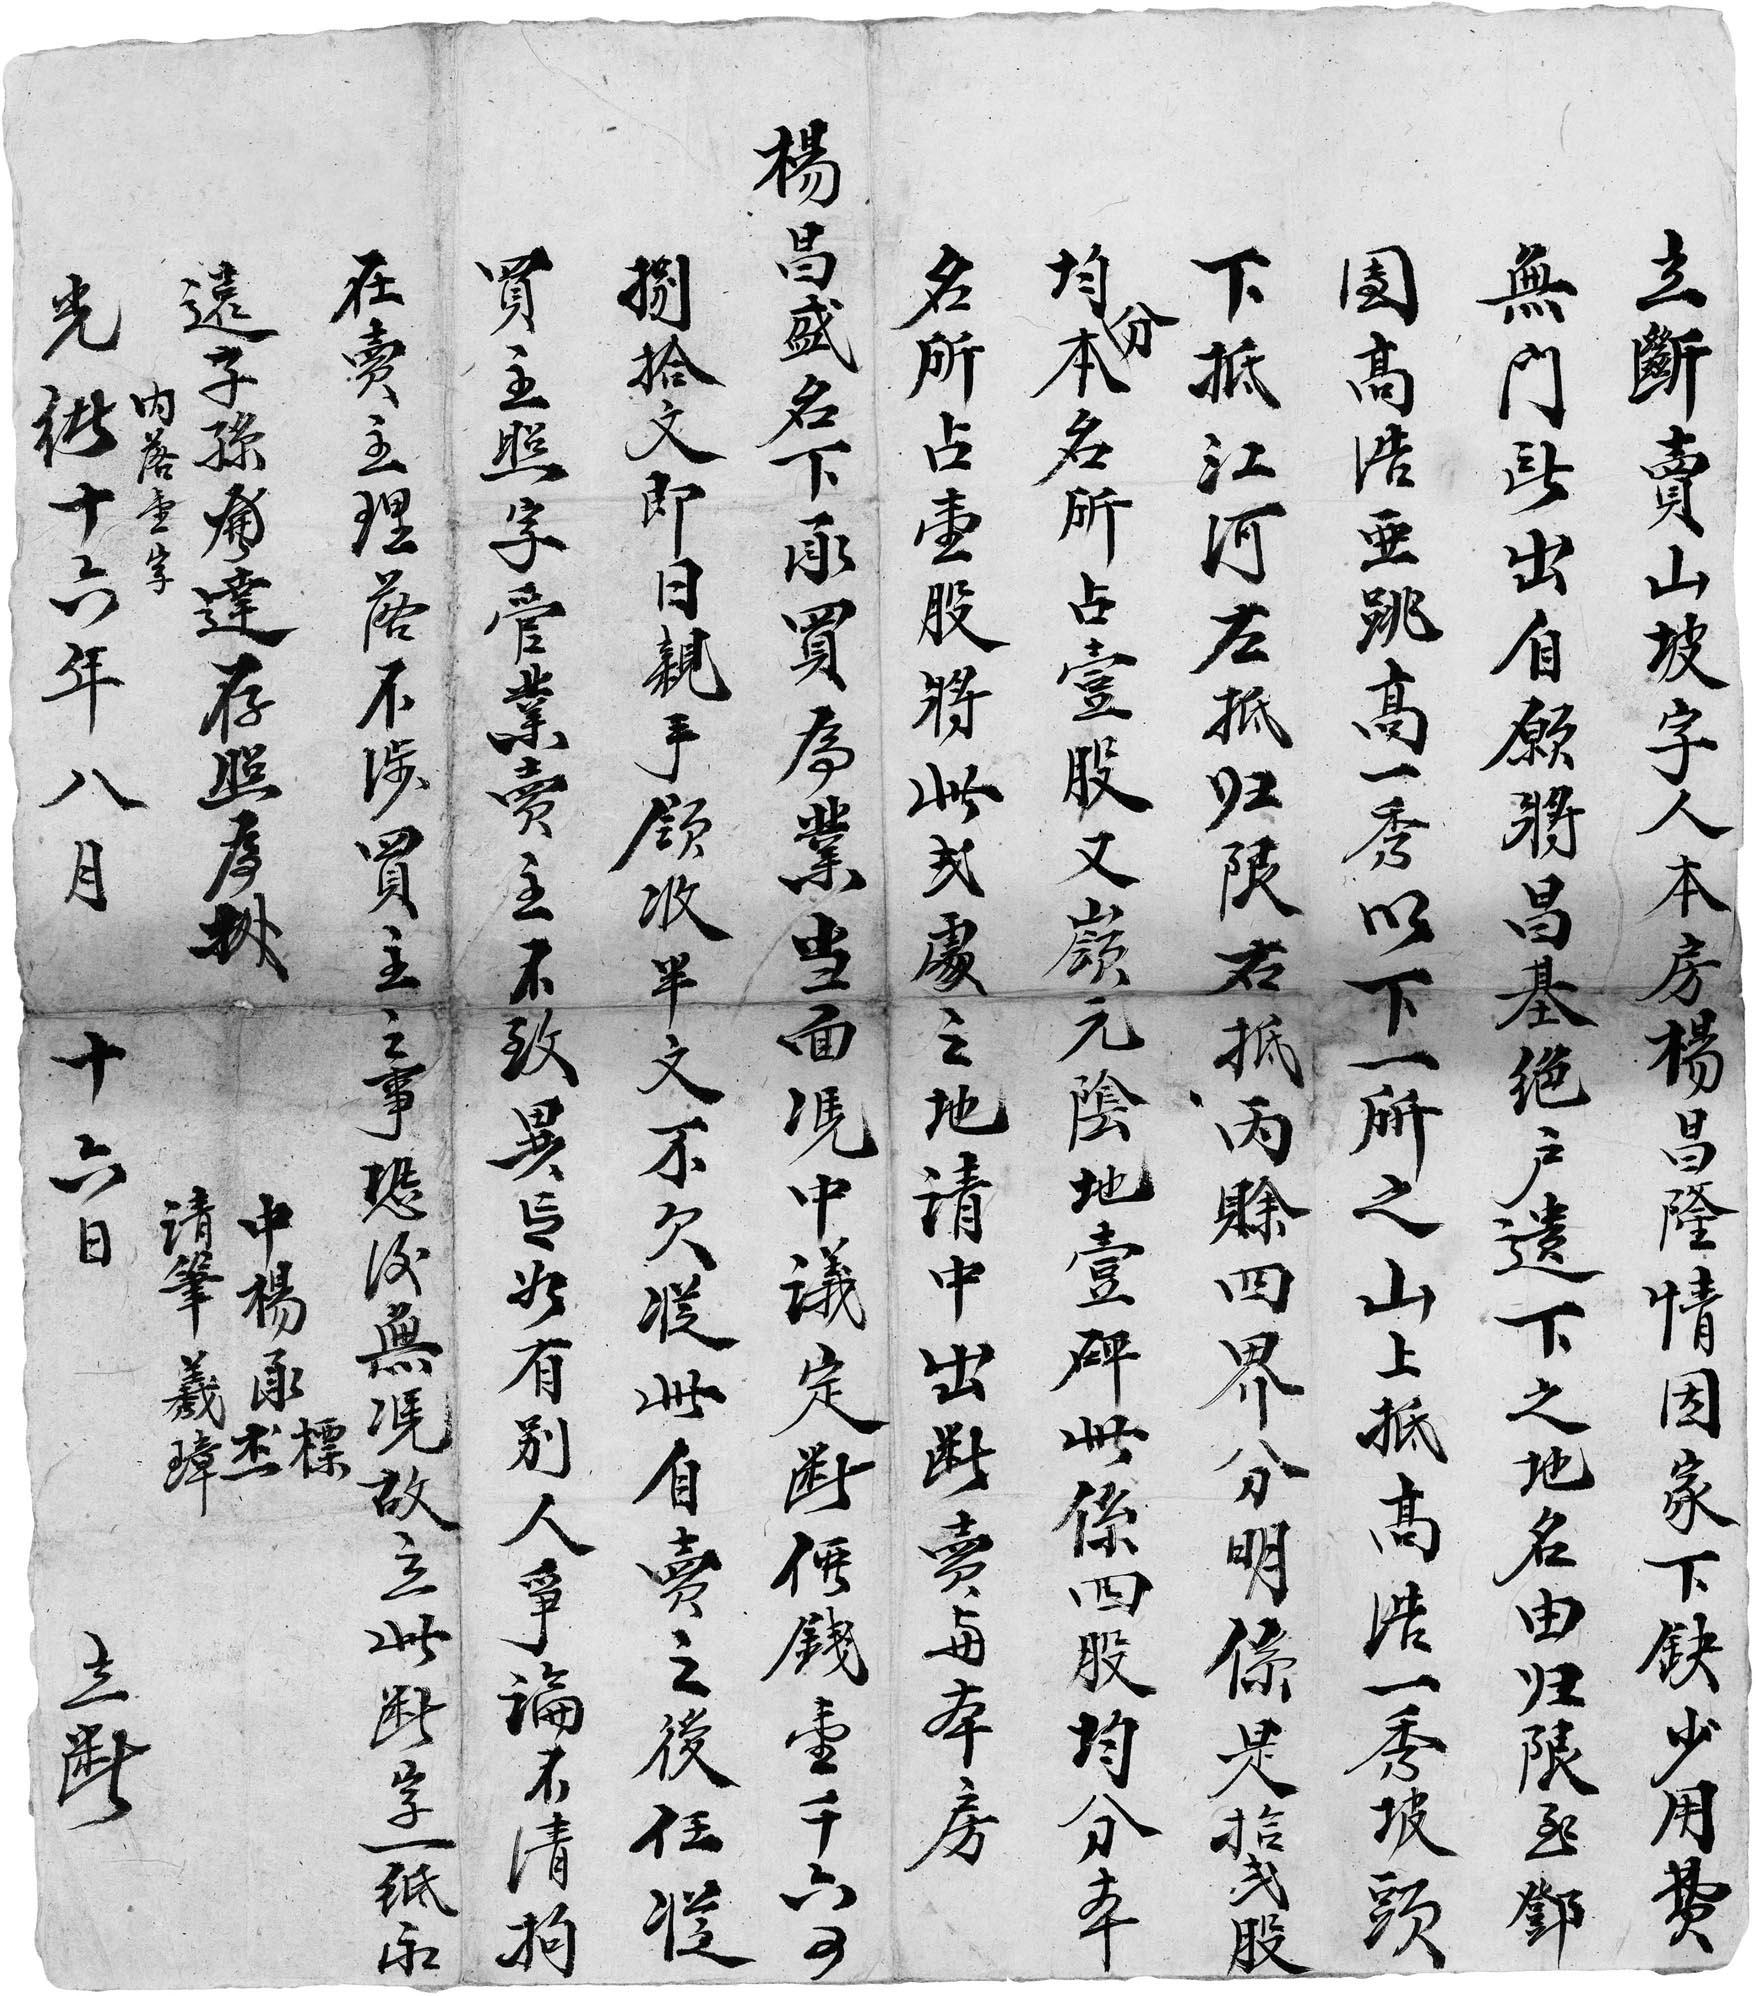 立斷賣山坡字人本房楊昌隆情因家下缺少用費
無門出自願將昌基绝户遺下之地名由归限鄧
園高浩亜跳高一秀以下一所之山上抵高浩一秀坡頭
下抵江河左抵归限右抵丙賒四界分明係是拾弍股
均分本名所占壹股又嶺元陰地壹碑此係四股均分本
名所占壹股將此弍處之地请中出断賣与本房
楊昌盛名下承買為業当面凴中議定断價錢壹千六百
捌拾文即日親手領收半文不欠從此自賣之後任從
買主照字管業賣主不致異言如有别人爭論不清拘
在賣主理落不涉買主之事恐後無凴故立此断字一纸永
遠子孫發達存照為據
内落壹字
中楊承標
丕
请筆羲璋
光緒十六年八月十六日立断